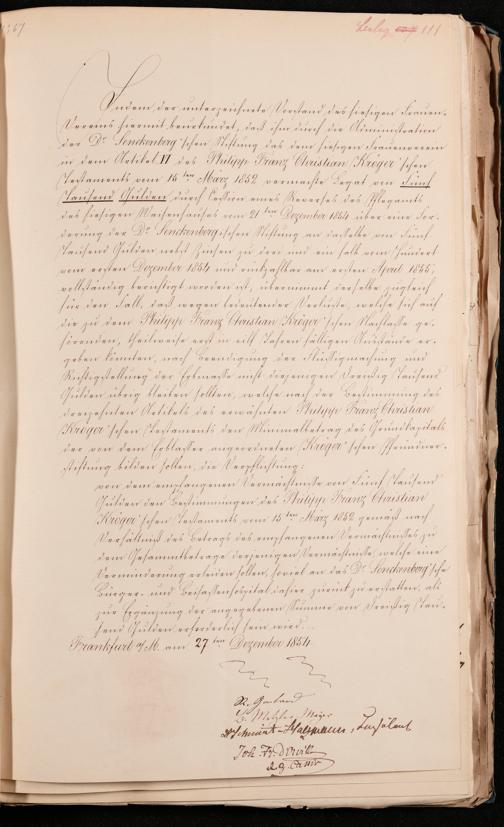 111
Indem der unterzeichnete Vorstand des hiesigen Frauen-
Vereins hiermit beurkundet, daß ihm durch die Administration
der Dr. Senckenberg'schen Stiftung das dem hiesigen Frauenverein
in dem Artikel VI des Philipp Franz Christian Kröger'schen
Testaments vom 15ten März 1852 vermachte Legat von Fünf
Tausend Gulden, durch Cession eines Reverses des Pflegamts
des hiesigen Waisenhauses vom 21ten Dezember 1854 über eine For-
derung der Dr. Senckenbergischen Stiftung an dasselbe von Fünf
Tausend Gulden nebst Zinsen zu drei und ein halb vom Hundert
vom ersten Dezember 1854 und rückzahlbar am ersten April 1855,
vollständig berichtigt worden ist, übernimmt derselbe zugleich
für den Fall, daß wegen bedeutender Verluste, welche sich auf
die zu dem Philipp Franz Christian Kröger'schen Nachlasse ge-
hörenden, theilweise erst in elf Jahren fälligen Ausstände er-
geben könnten, nach Beendigung der Flüssigmachung und
Richtigstellung der Erbmasse nicht diejenigen Dreißig Tausend
Gulden übrig bleiben sollten, welche nach der Bestimmung des
dreizehnten Artikels des erwähnten Philipp Franz Christian
Kröger'schen Testaments den Minimalbetrag des Grundkapitals
der von dem Erblasser angeordneten Kröger'schen Pfründner-
stiftung bilden sollen, die Verpflichtung:
von dem empfangenen Vermächtnisse von Fünf Tausend
Gulden den Bestimmungen des Philipp Franz Christian
Kröger'schen Testaments vom 15ten März 1852 gemäß nach
Verhältniß des Betrags des empfangenen Vermächtnisses zu
dem Gesammtbetrage derjenigen Vermächtnisse, welche eine
Verminderung erleiden sollen, soviel an das Dr. Senckenberg'sche
Bürger- und Beisassenhospital dahier zurück zu erstatten, als
zur Ergänzung der angegebenen Summe von Dreißig Tau-
send Gulden erforderlich sein wird.
Frankfurt a/M. am 27ten Dezember 1854